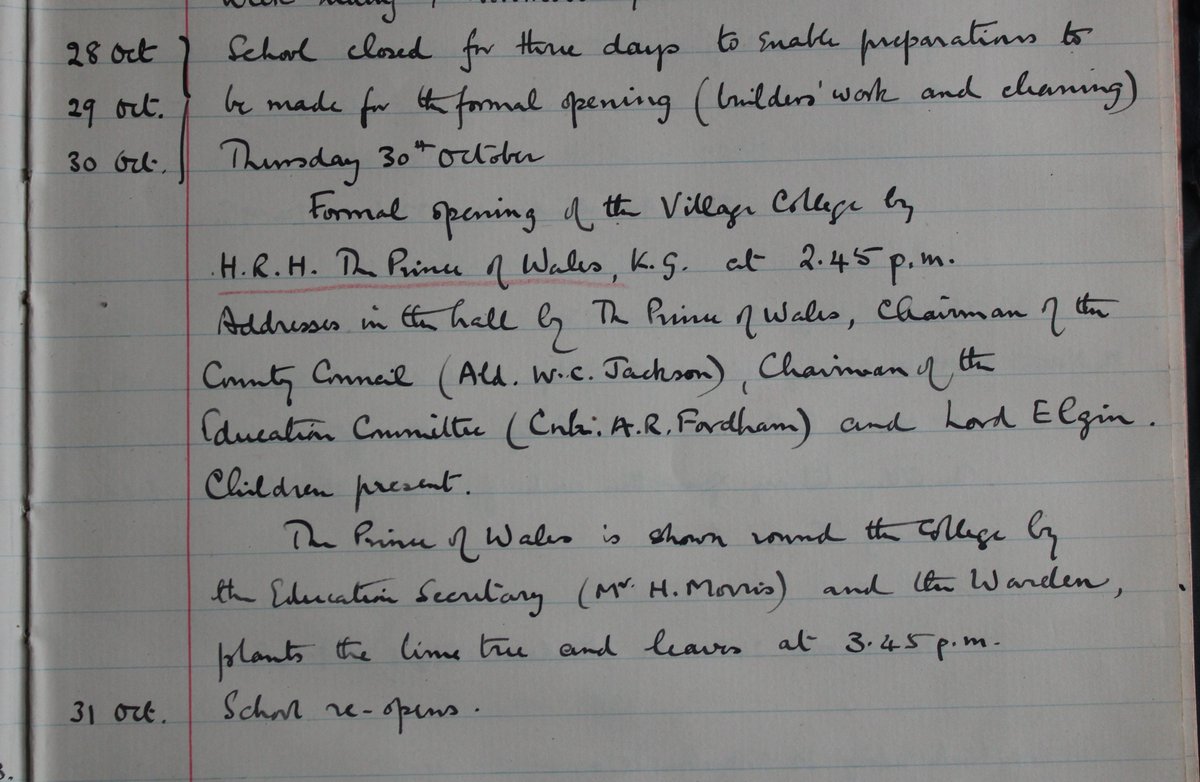 28 Oct School closed for three days to enable preparations to
29 Oct. be made for the formal opening (builders' work and cleaning)
30 Oct. Thursday 30th October
Formal opening of the Village College by
H.R.H. The Prince of Wales, K.G. at 2.45 p.m.
Addresses in the hall by The Prince of Wales, Chairman of the
County Council (Ald. W.C. Jackson), Chairman of the
Education Committee (A.R. Fordham) and Lord Elgin.
Children present.
The Prince of Wales is shown round the College by
the Education Secretary (Mr. H. Morris) and the Warden,
plants the lime tree and leaves at 3.45 p.m.
31 Oct. School re-opens.